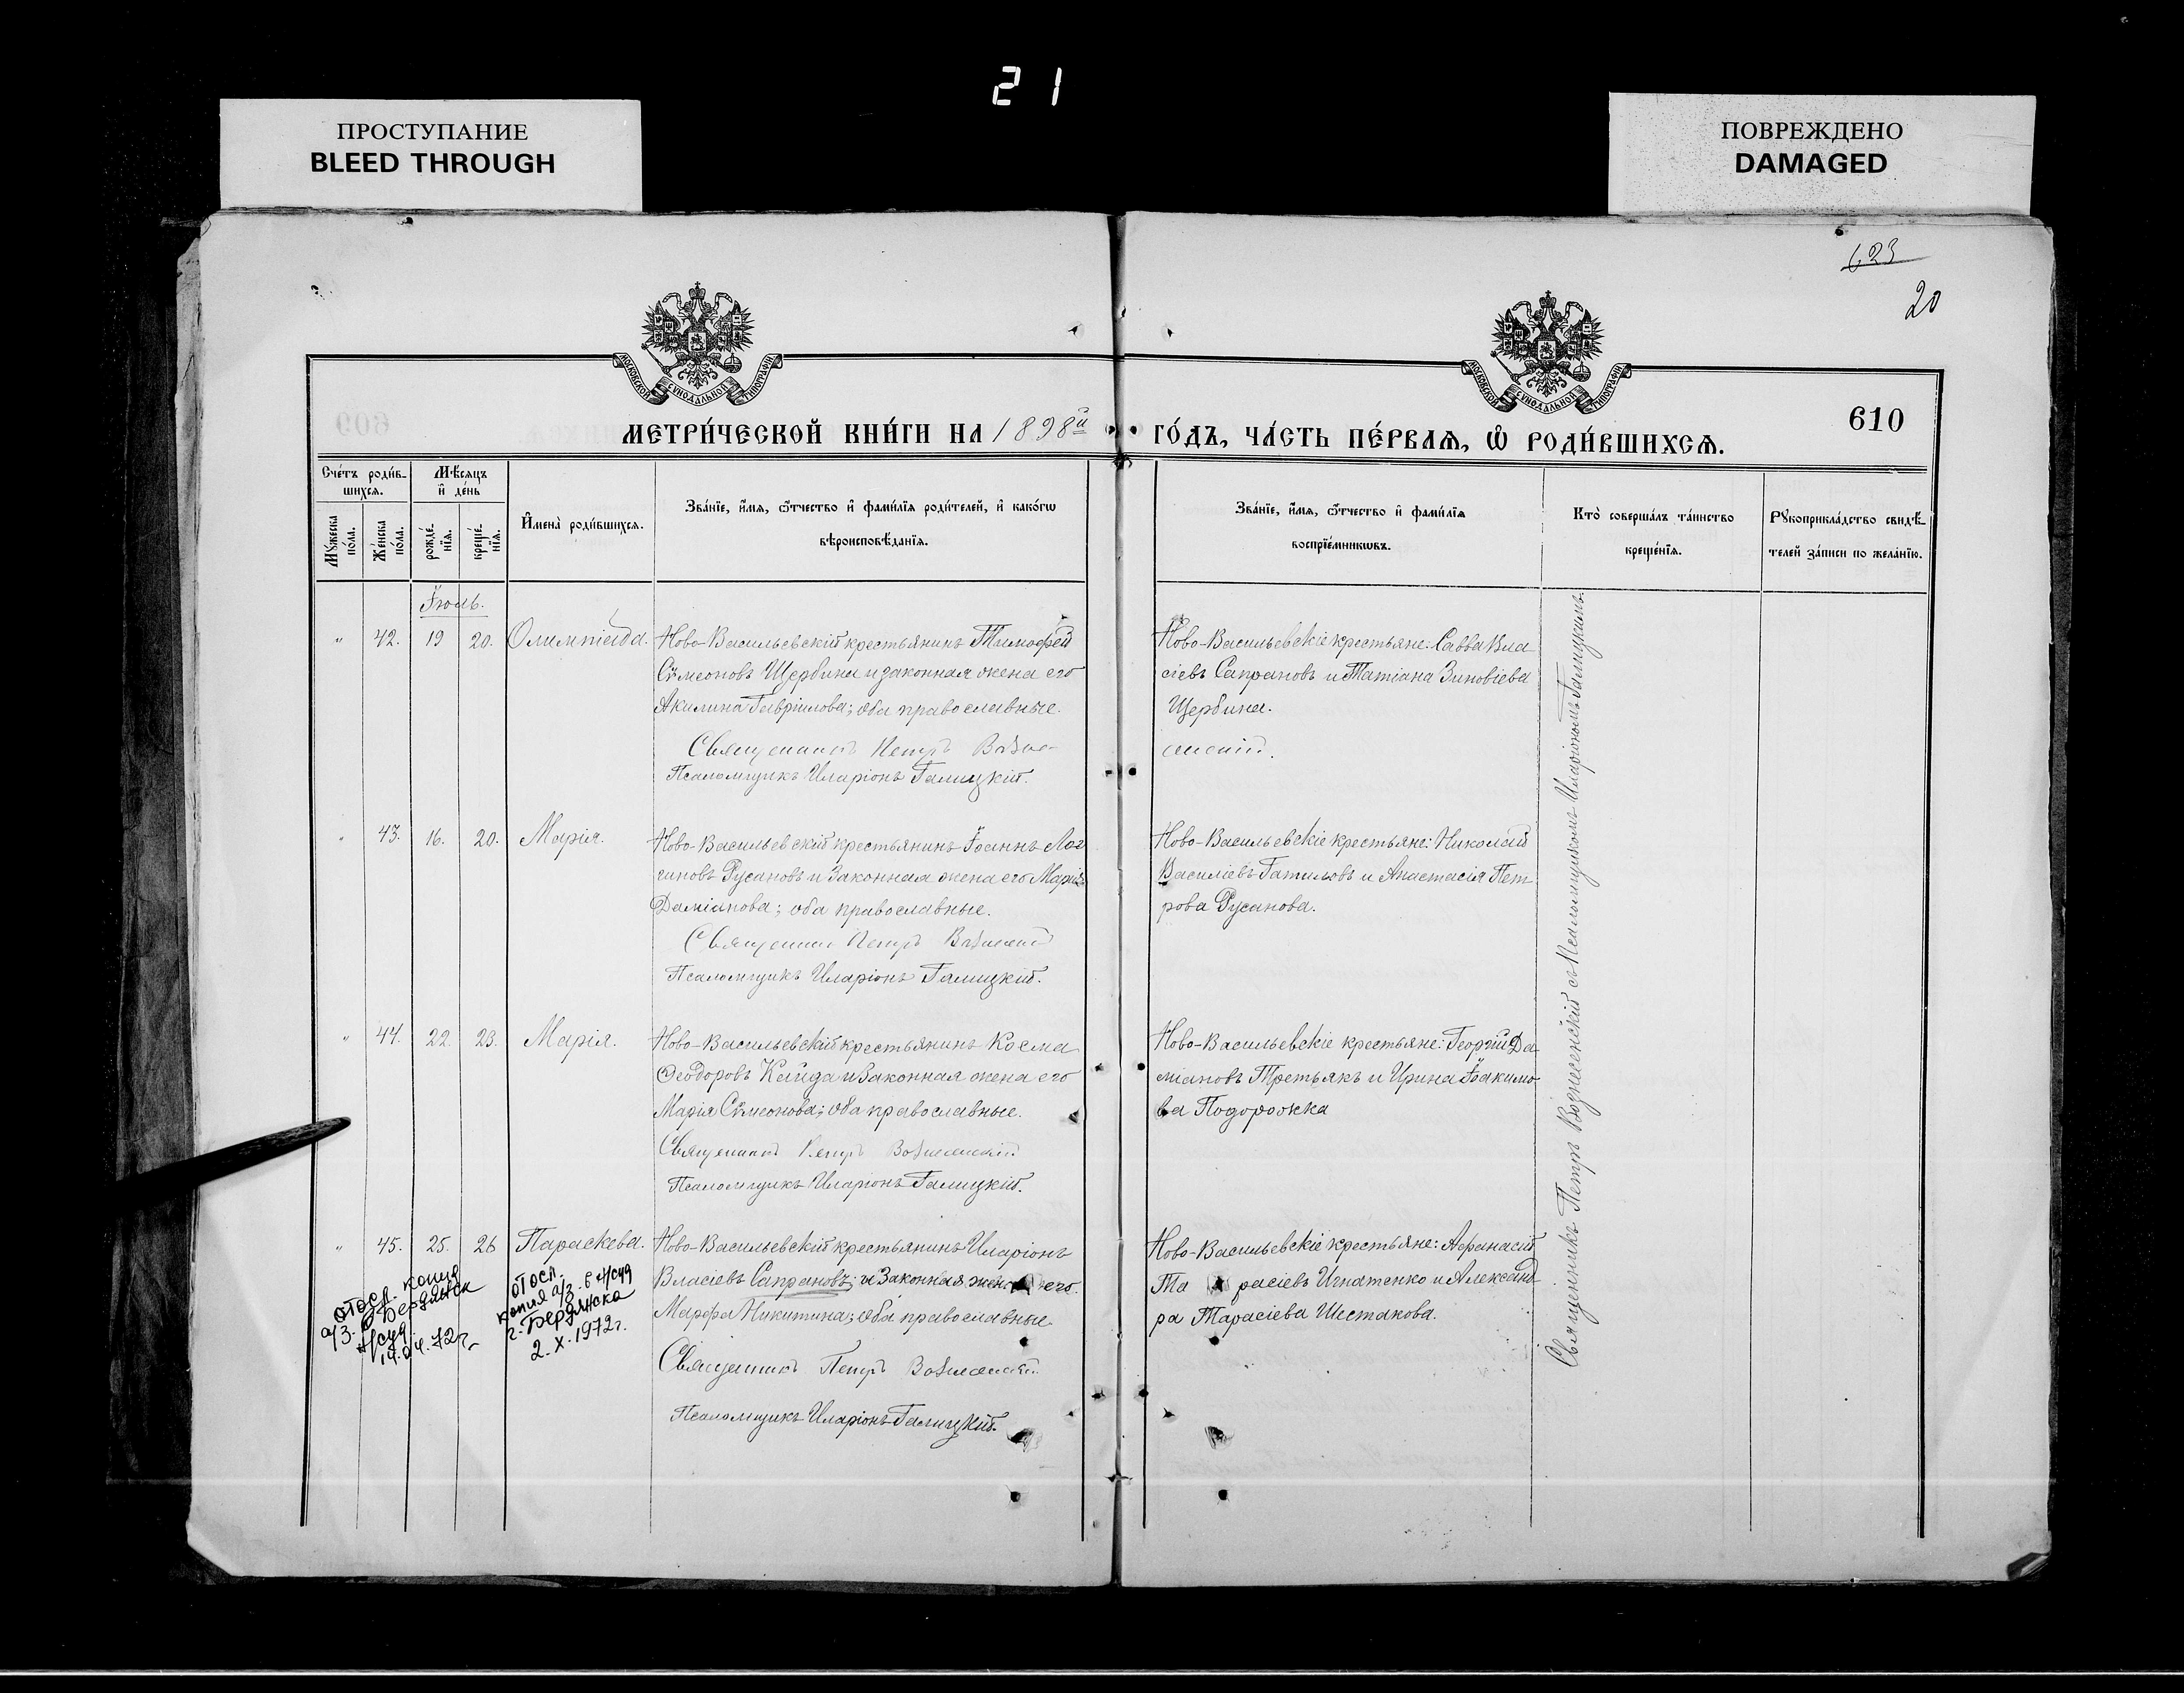 21
ПРОСТУПАНИЕ
BLEED THROUGH
ПОВРЕЖДЕНО
DAMAGED
623
20
МОСКОВСКОЙ СѴНОДАЛЬНОЙ ТИПОГРАФІИ
МОСКОВСКОЙ СѴНОДАЛЬНОЙ ТИПОГРАФІИ
609
610
МЕТРИ́ЧЕСКОЙ КНИ́ГИ НА 1898й
ГО́ДЪ, ЧА́СТЬ ПЕ́РВАѦ, Ѡ҆ РОДИ́ВШИХСѦ.
Сче́тъ роди́в-
шихсѧ.
Мѣ́сѧцъ
и҆ де́нь
Мꙋ́жеска
по́ла.
Же́нска
по́ла.
рожде́-
нїѧ.
креще́-
нїѧ.
И҆мена̀ роди́вшихсѧ.
Зва́нїе, и҆́мѧ, ѻ҆́тчество и҆ фами́лїѧ роди́телей, и҆ како́гѡ
вѣроисповѣ́данїѧ.
Зва́нїе, и҆́мѧ, ѻ҆́тчество и҆ фами́лїѧ
воспрїе́мникѡвъ.
Кто̀ соверша́лъ та́инство
креще́нїѧ.
Рꙋкоприкла́дство свидѣ́-
телей за́писи по жела́нїю.
Іюль.
" 42. 19 20. Олимпіада.
Ново-Васильевскій крестьянинъ Тимофей
Сѵмеоновъ Щербина и законная жена его
Акилина Гавріилова; оба православные.
Священникъ Петръ Возне-
Псаломщикъ Иларіонъ Галицкій.
Ново-Васильевскіе крестьяне: Савва Вла
сіевъ Сапрановъ и Татіана Зиновіева
Щербина.
сенскій.
" 43. 16. 20. Марія.
Ново-Васильевскій крестьянинъ Іоаннъ Лог
гиновъ Русановъ и законная жена его Марія
Даміанова; оба православные.
Священникъ Петръ Вознесенскій
Псаломщикъ Иларіонъ Галицкій.
Ново-Васильевскіе крестьяне: Николай
Василіевъ Гатиловъ и Анастасія Пет
рова Русанова.
" 44. 22. 23. Марія.
Ново-Васильевскій крестьянинъ Косма
Ѳеодоровъ Кайда и законная жена его
Марія Сѵмеонова; оба православные.
Священникъ Петръ Вознесенскій
Псаломщикъ Иларіонъ Галицкій.
Ново-Васильевскіе крестьяне: Георгій Да-
міановъ Третьякъ и Ирина Іоакимо-
ва Подорожка
" 45. 25. 26 Параскева.
Ново-Васильевскій крестьянинъ Иларіонъ
Власіевъ Сапрановъ; и законная жена его
Марфа Никитина; оба православные.
Священникъ Петръ Вознесенскій
Псаломщикъ Иларіонъ Галицкій.
Ново-Васильевскіе крестьяне: Афанасій
Та расіевъ Игнатенко и Александ-
ра Тарасіева Шестакова.
отосл. копия
а/з. в Бердянск
н/суд.
72г.
отосл.
копия а/з. в н/суд
г. Бердянска
2.X.1972г.
Священникъ Петръ Вознесенскій съ Псаломщикомъ Иларіономъ Галицкимъ.